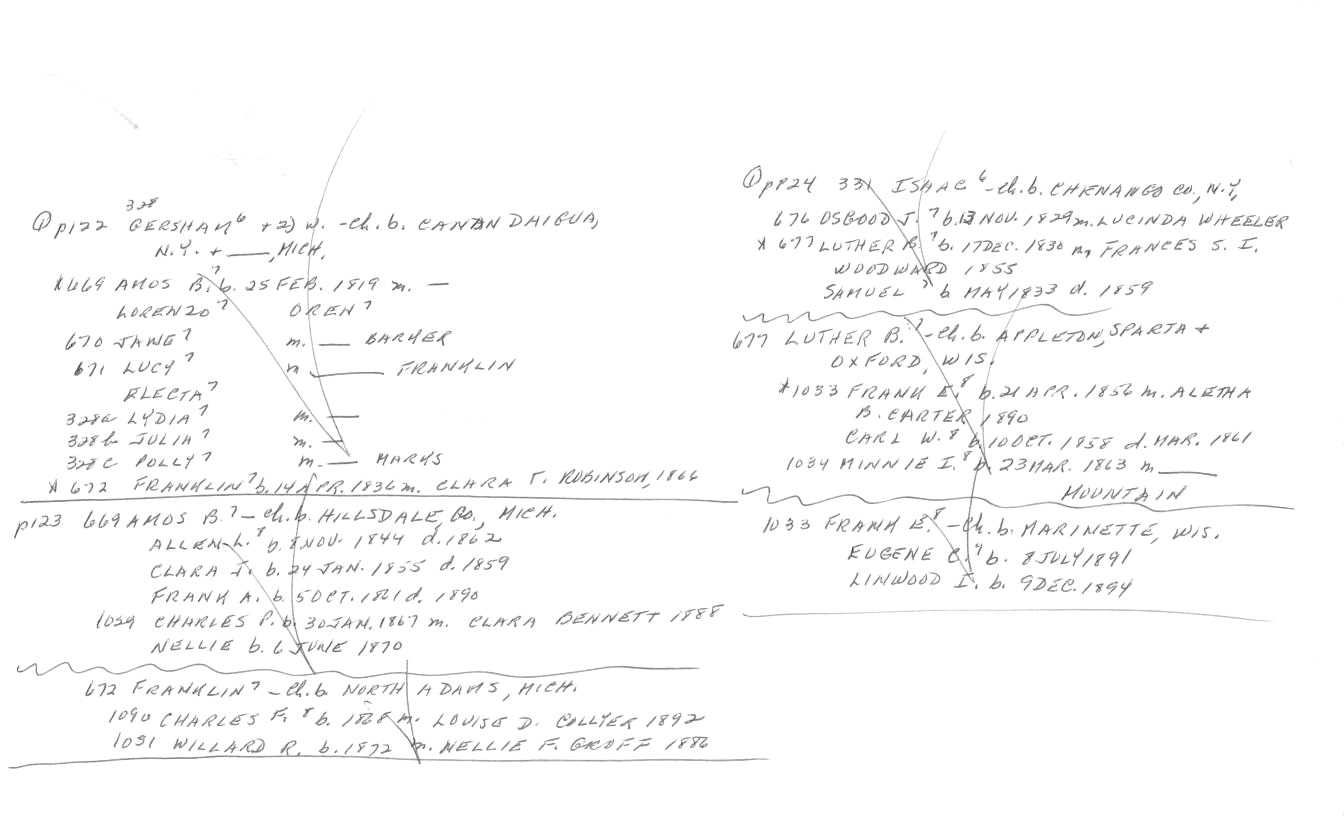 ① p122 328 GERSHAM⁶ + 2) W. - Ch. b. CANANDAIGUA,
N.Y. + ___, MICH.
x 669 AMOS B.⁷ b. 25 FEB. 1819 m. —
LORENZO⁷ OREN⁷
670 JANE⁷ m. ___ BARKER
671 LUCY⁷ m ___ FRANKLIN
ELECTA⁷
328a LYDIA⁷ m. —
328b JULIA⁷ m. —
328c POLLY⁷ m. — MARKS
x 672 FRANKLIN⁷ b. 14 APR. 1836 m. CLARA T. ROBINSON, 1866
p123 669 AMOS B.⁷ - Ch. b. HILLSDALE, CO., MICH.
ALLEN L.⁸ b. 8 NOV. 1844 d. 1862
CLARA J. b. 24 JAN. 1855 d. 1859
FRANK A. b. 5 OCT. 1861 d. 1890
1029 CHARLES P. b. 30 JAN. 1867 m. CLARA BENNETT 1888
NELLIE b. 6 JUNE 1870
672 FRANKLIN⁷ - Ch. b NORTH ADAMS, MICH.
CHARLES F.⁸ b. 1868 m. LOUISE D. COLLYER 1892
1031 WILLARD R. b. 1872 m. NELLIE F. GROFF
① pP24 331 ISAAC⁶ - Ch. b. CHENANGO CO., N.Y.,
676 OSGOOD J.⁷ b. 13 NOV. 1829 m. LUCINDA WHEELER
x 677 LUTHER B.⁷ b. 17 DEC. 1830 m. FRANCES S. I.
WOODWARD 1855
SAMUEL⁷ b MAY 1833 d. 1859
677 LUTHER B.⁷ - Ch. b. APPLETON, SPARTA +
OXFORD, WIS.
x 1033 FRANK E.⁸ b. 21 APR. 1856 m. ALETHA
B. CARTER 1890
CARL W.⁸ b. 10 OCT. 1858 d. MAR. 1861
1034 MINNIE I.⁸ b. 23 MAR. 1863 m ___
MOUNTAIN
1033 FRANK E.⁸ - Ch. b. MARINETTE, WIS.
EUGENE C.⁹ b. 8 JULY 1891
LINWOOD I. b. 9 DEC. 1894